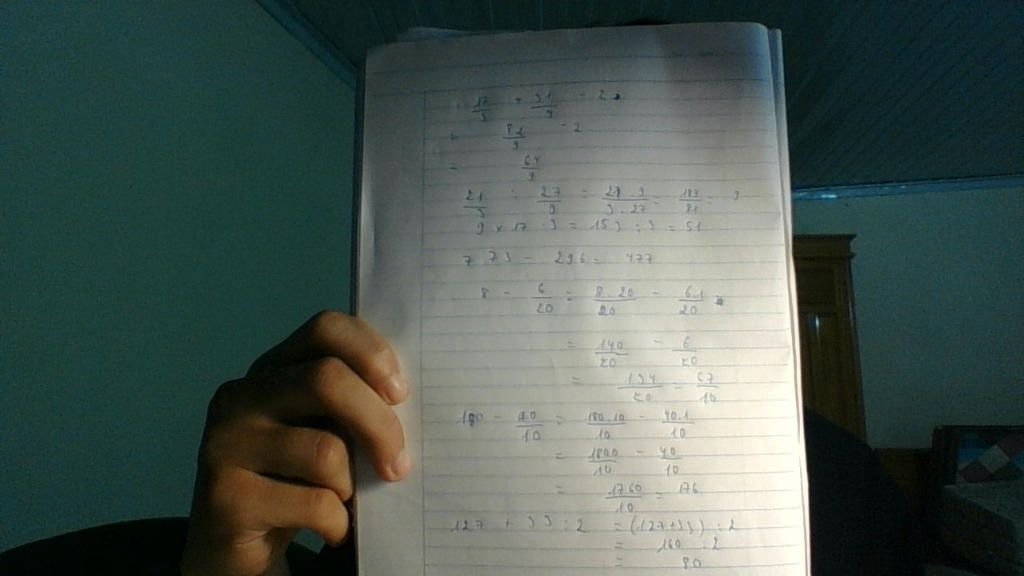 = 17/3 + 31/9 - 2
= 82/9 - 2
= 64/9
21/3 : 27/9 = 21 . 9/3 . 27 = 187/81 = 3
9 x 17 : 3 = 153 : 3 = 51
773 - 296 = 477
8 - 6/20 = 8 . 20/20 - 6.1/20 =
= 140/20 - 6/20
= 134/20 = 67/10
180 - 40/10 = 180.10/10 - 40.1/10
= 1800/10 - 40/10
= 1760/10 = 176
127 + 33 : 2 = (127+33) : 2
= 160 : 2
= 80